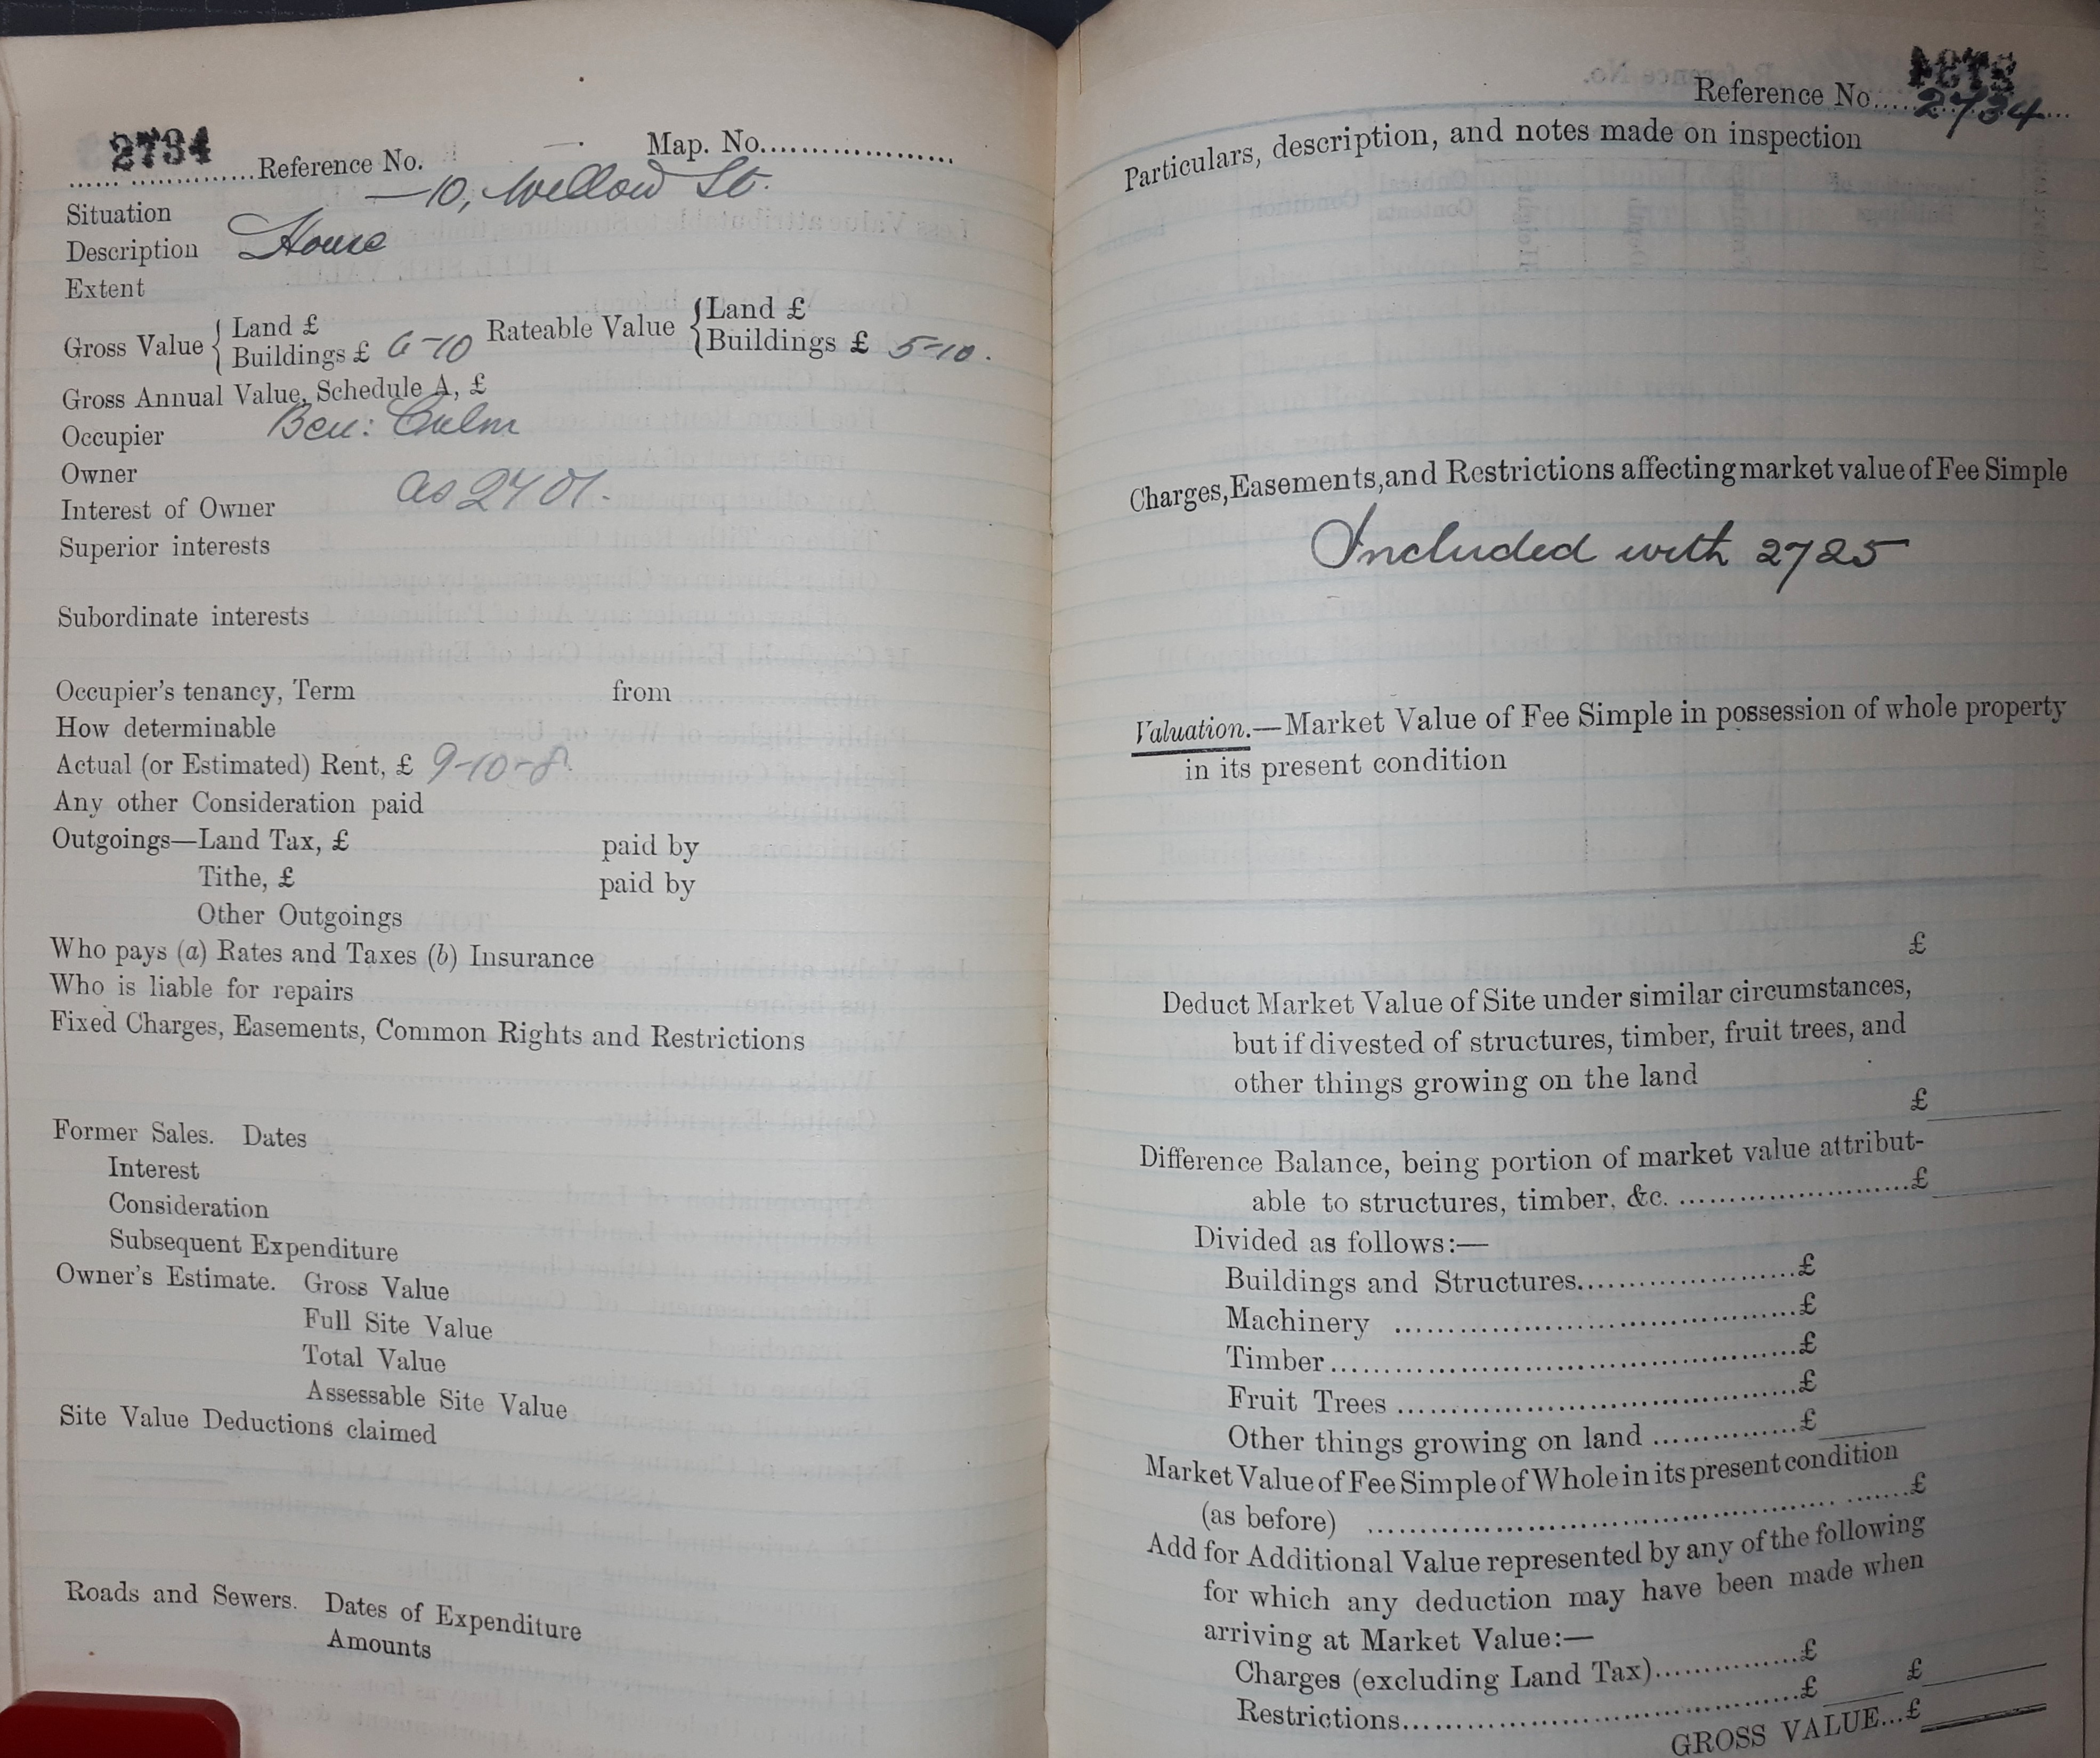 2734 Reference No. Map. No.
Situation — 10, Willow St.
Description House
Extent
Gross Value { Land £ Rateable Value { Land £
Buildings £ 6-10 Buildings £ 5-10.
Gross Annual Value, Schedule A, £
Occupier Ben: Culm
Owner
Interest of Owner as 2701.
Superior interests
Subordinate interests
Occupier's tenancy, Term from
How determinable
Actual (or Estimated) Rent, £ 9-10-8.
Any other Consideration paid
Outgoings—Land Tax, £ paid by
Tithe, £ paid by
Other Outgoings
Who pays (a) Rates and Taxes (b) Insurance
Who is liable for repairs
Fixed Charges, Easements, Common Rights and Restrictions
Former Sales. Dates
Interest
Consideration
Subsequent Expenditure
Owner's Estimate. Gross Value
Full Site Value
Total Value
Assessable Site Value
Site Value Deductions claimed
Roads and Sewers. Dates of Expenditure
Amounts
Reference No. 2734
Particulars, description, and notes made on inspection
Charges, Easements, and Restrictions affecting market value of Fee Simple
Included with 2725
Valuation.—Market Value of Fee Simple in possession of whole property
in its present condition
£
Deduct Market Value of Site under similar circumstances,
but if divested of structures, timber, fruit trees, and
other things growing on the land
£
Difference Balance, being portion of market value attribut-
able to structures, timber, &c. £
Divided as follows:—
Buildings and Structures £
Machinery £
Timber £
Fruit Trees £
Other things growing on land £
Market Value of Fee Simple of Whole in its present condition
(as before) £
Add for Additional Value represented by any of the following
for which any deduction may have been made when
arriving at Market Value:—
Charges (excluding Land Tax) £
Restrictions £ £
GROSS VALUE...£